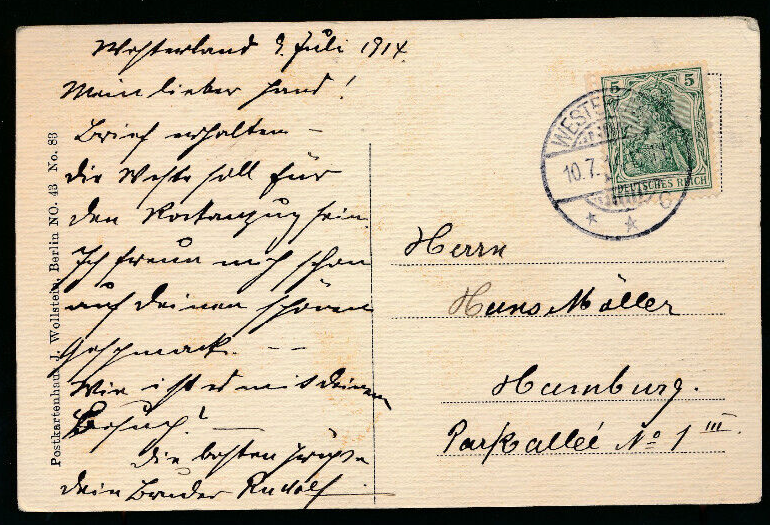 Westerland 9. Juli 1914.
Mein lieber Hans!
Brief erhalten –
die Weste soll für
den Rockanzug sein.
Ich freue mich schon
auf deinen schönen
Geschmack. – –
Wie ist es mit deinem
Besuch? –
Die besten Grüße
dein Bruder Rudolf
Postkartenhaus J. Wollstein, Berlin NO. 43 No. 83
5 5
DEUTSCHES REICH
WESTERLAND
10.7.
Herrn
Hans Möller
Hamburg.
Parkalleé No 1 III.